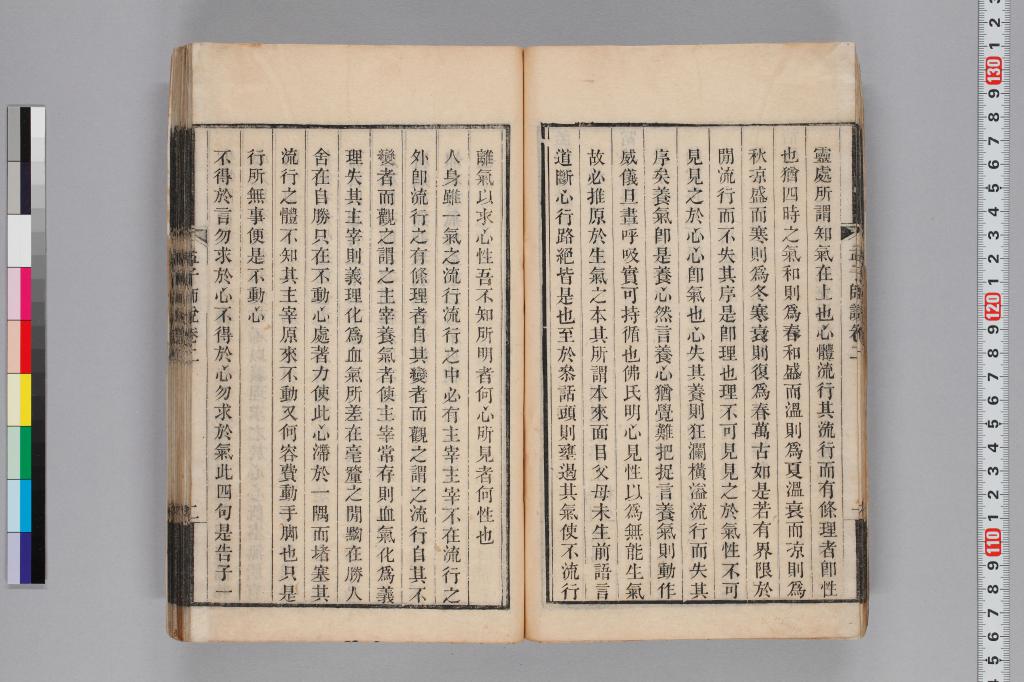 靈處所謂知氣在上也心體流行其流行而有條理者卽性
也猶四時之氣和則爲春和盛而溫則爲夏溫衰而凉則爲
秋凉盛而寒則爲冬寒衰則復爲春萬古如是若有界限於
閒流行而不失其序是卽理也理不可見見之於氣性不可
見見之於心心卽氣也心失其養則狂瀾橫溢流行而失其
序矣養氣卽是養心然言養心猶覺難把捉言養氣則動作
威儀旦晝呼吸實可持循也佛氏明心見性以爲無能生氣
故必推原於生氣之本其所謂本來面目父母未生前語言
道斷心行路絕皆是也至於叅話頭則壅遏其氣使不流行
離氣以求心性吾不知所明者何心所見者何性也
人身雖一氣之流行流行之中必有主宰主宰不在流行之
外卽流行之有條理者自其變者而觀之謂之流行自其不
變者而觀之謂之主宰養氣者使主宰常存則血氣化爲義
理失其主宰則義理化爲血氣所差在毫釐之閒黝在勝人
舍在自勝只在不動心處著力使此心滯於一隅而堵塞其
流行之體不知其主宰原來不動又何容費動手脚也只是
行所無事便是不動心
不得於言勿求於心不得於心勿求於氣此四句是告子一
孟子師說卷二
二
130
120
110